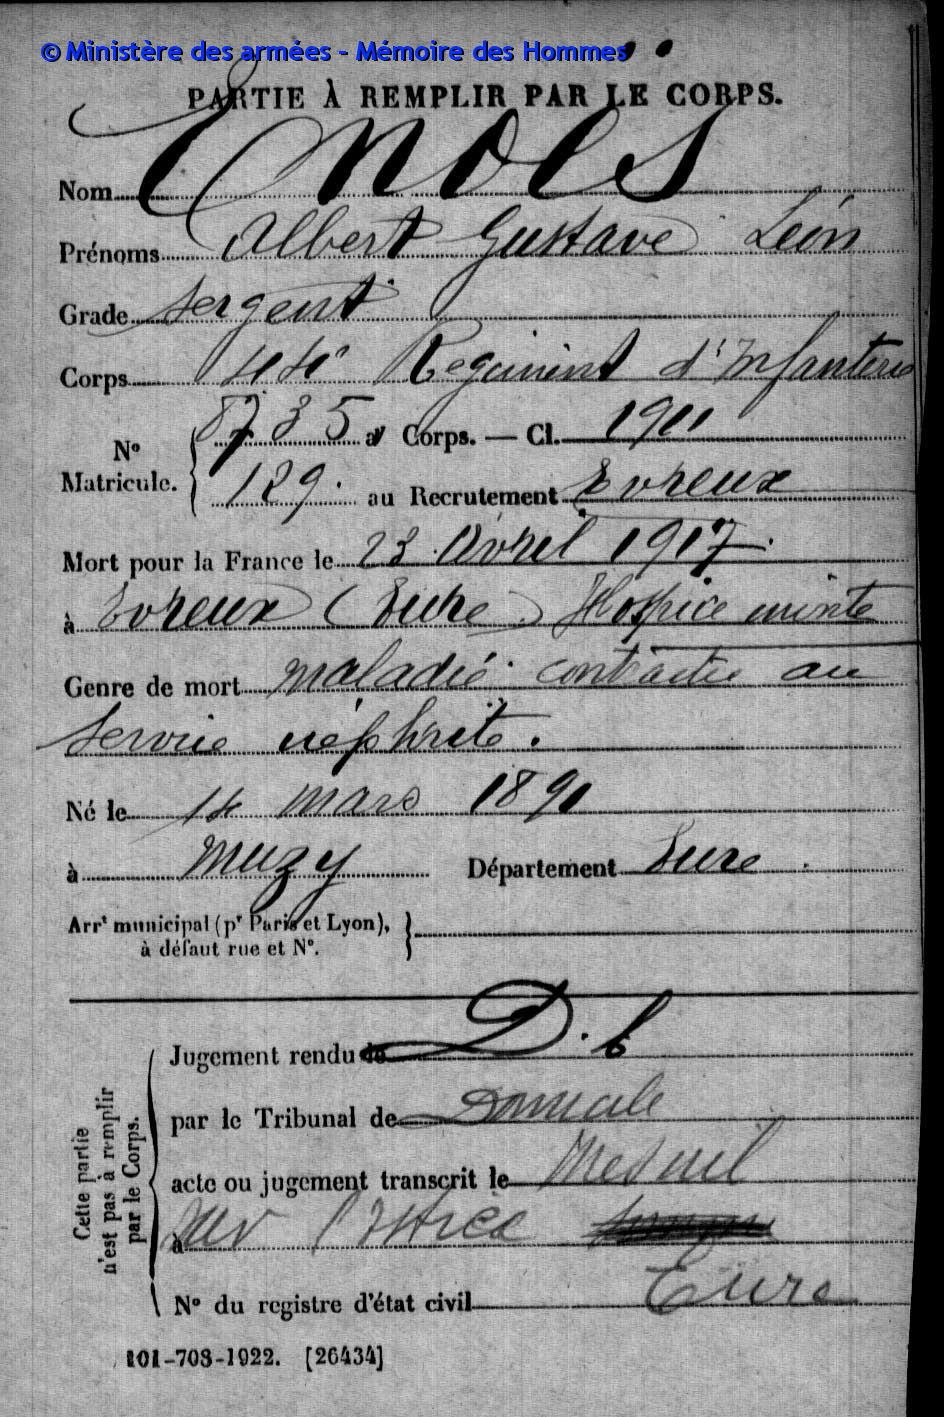 © Ministère des armées - Mémoire des Hommes
PARTIE À REMPLIR PAR LE CORPS.
Nom Enoës
Prénoms Albert Gustave Léon
Grade Sergent
Corps Régiment d'Infanterie
N° Matricule. 8735 au Corps. — Cl. 1911
189. au Recrutement Evreux
Mort pour la France le 23 Avril 1917.
à Evreux (Eure) Hospice mixte
Genre de mort maladie contractée au
service néphrite.
Né le 14 mars 1891
à Muzy Département Eure.
Arrt municipal (pr Paris et Lyon),
à défaut rue et N°.
Cette partie
n'est pas à remplir
par le Corps.
Jugement rendu le D.
par le Tribunal de Domicile
acte ou jugement transcrit le Mesnil
à sur l'Estrée
Eure
N° du registre d'état civil
101-708-1922. [26434]